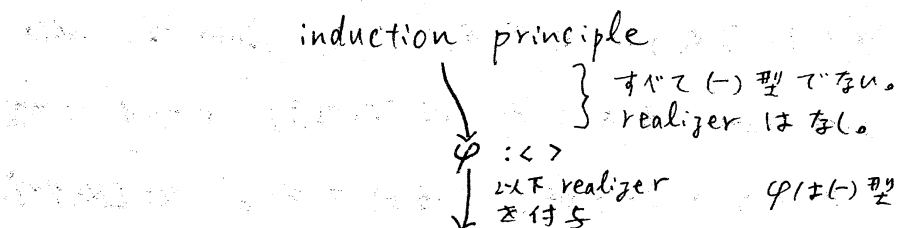 induction principle
すべて (-) 型 でない。
realizer は なし。
φ : < >
以下 realizer
を付与
φは(-) 型